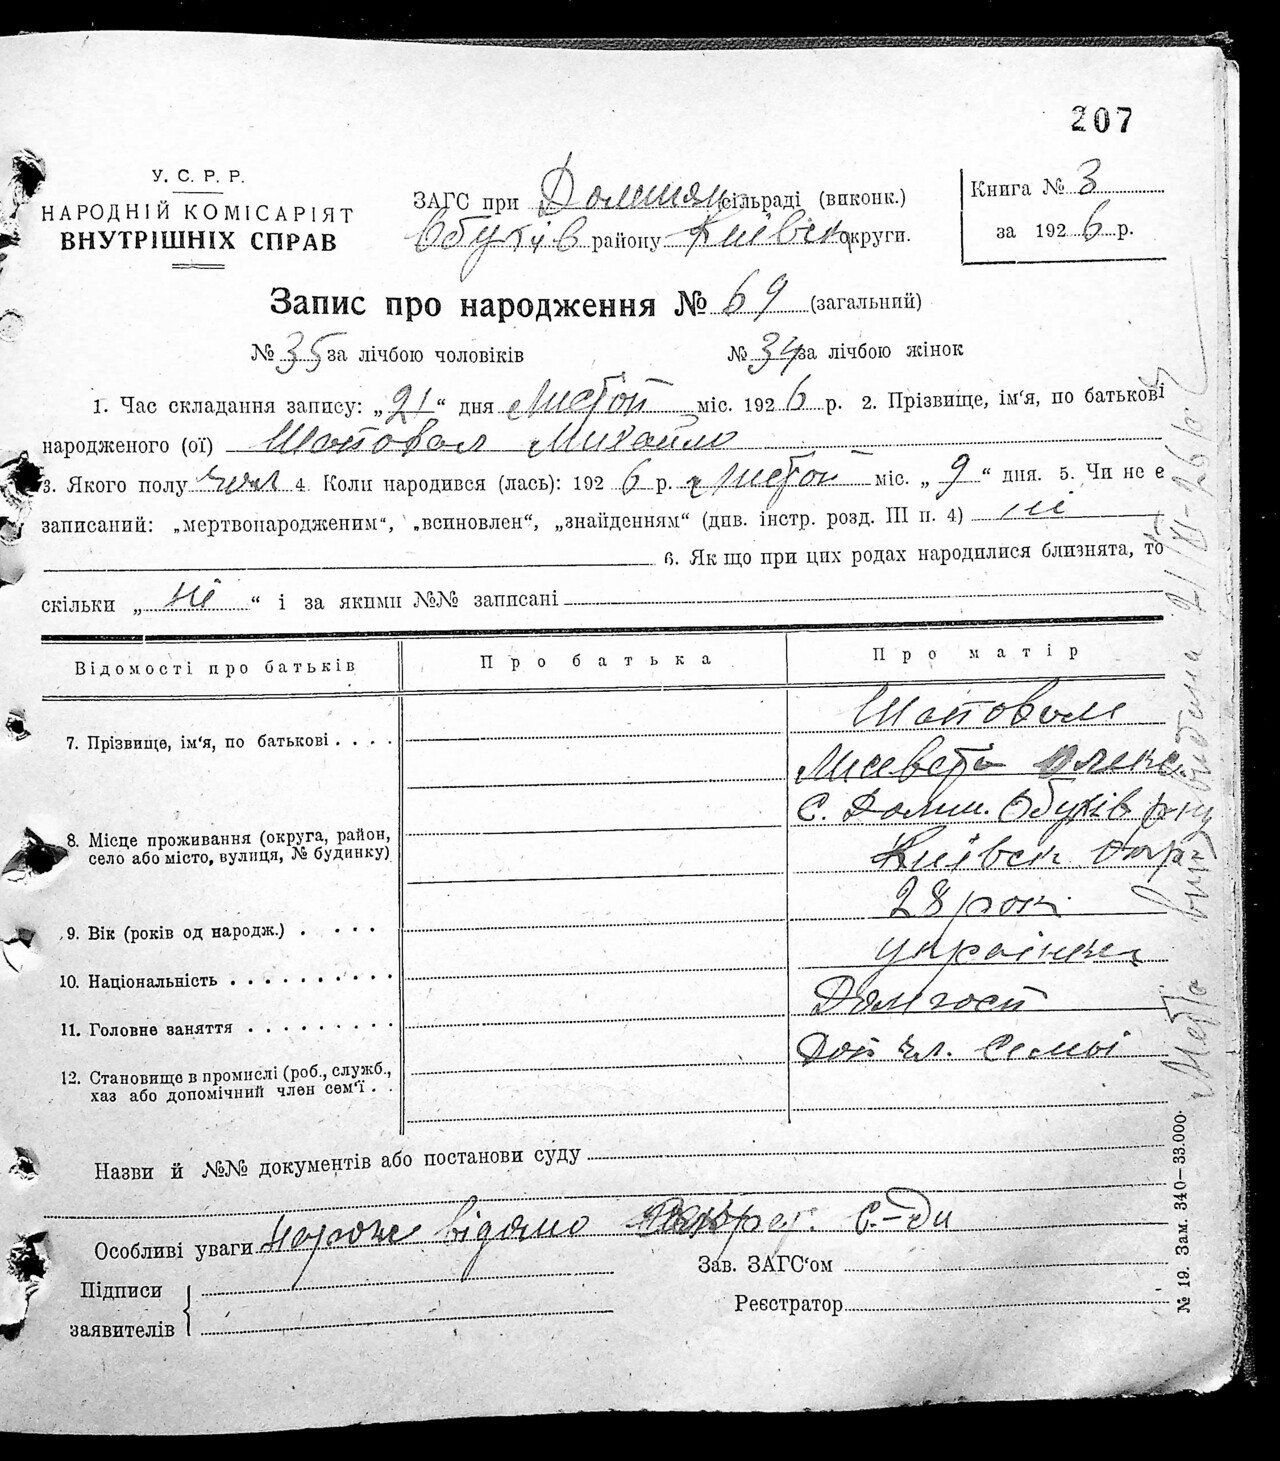 207
У. С. Р. Р.
НАРОДНІЙ КОМІСАРІЯТ
ВНУТРІШНІХ СПРАВ
ЗАГС при сільраді (виконк.)
Обухів району Київськ округи.
Книга № 3
за 1926 р.
Запис про народження № 69 (загальний)
№ 35 за лічбою чоловіків № 34 за лічбою жінок
1. Час складання запису: „21“ дня Листоп міс. 1926 р. 2. Прізвище, ім'я, по батькові
народженого (ої) Шаповал Михайло
3. Якого полу чол 4. Коли народився (лась): 1926 р. Листоп міс. „9“ дня. 5. Чи не є
записаний: „мертвонародженим“, „всиновлен“, „знайденням“ (див. інстр. розд. III п. 4) ні
6. Як що при цих родах народилися близнята, то
скільки „ні“ і за якими №№ записані
Відомості про батьків Про батька Про матір
7. Прізвище, ім'я, по батькові . . . . Шаповал
Олекс.
8. Місце проживання (округа, район, село або місто, вулиця, № будинку) С. Обухів р-ну
Київськ окр
9. Вік (років од народж.) . . . . . 28 рок
10. Національність . . . . . . . . . . українка
11. Головне заняття . . . . . . . . . Дом госп
12. Становище в промислі (роб., служб., хаз або допомічний член сем'ї . . Доп чл. Семьі
Назви й №№ документів або постанови суду
Особливі уваги відомо С.-ди
Підписи
заявителів
Зав. ЗАГС'ом
Реєстратор
№ 19. Зам. 340—33.000.
21/XI-26